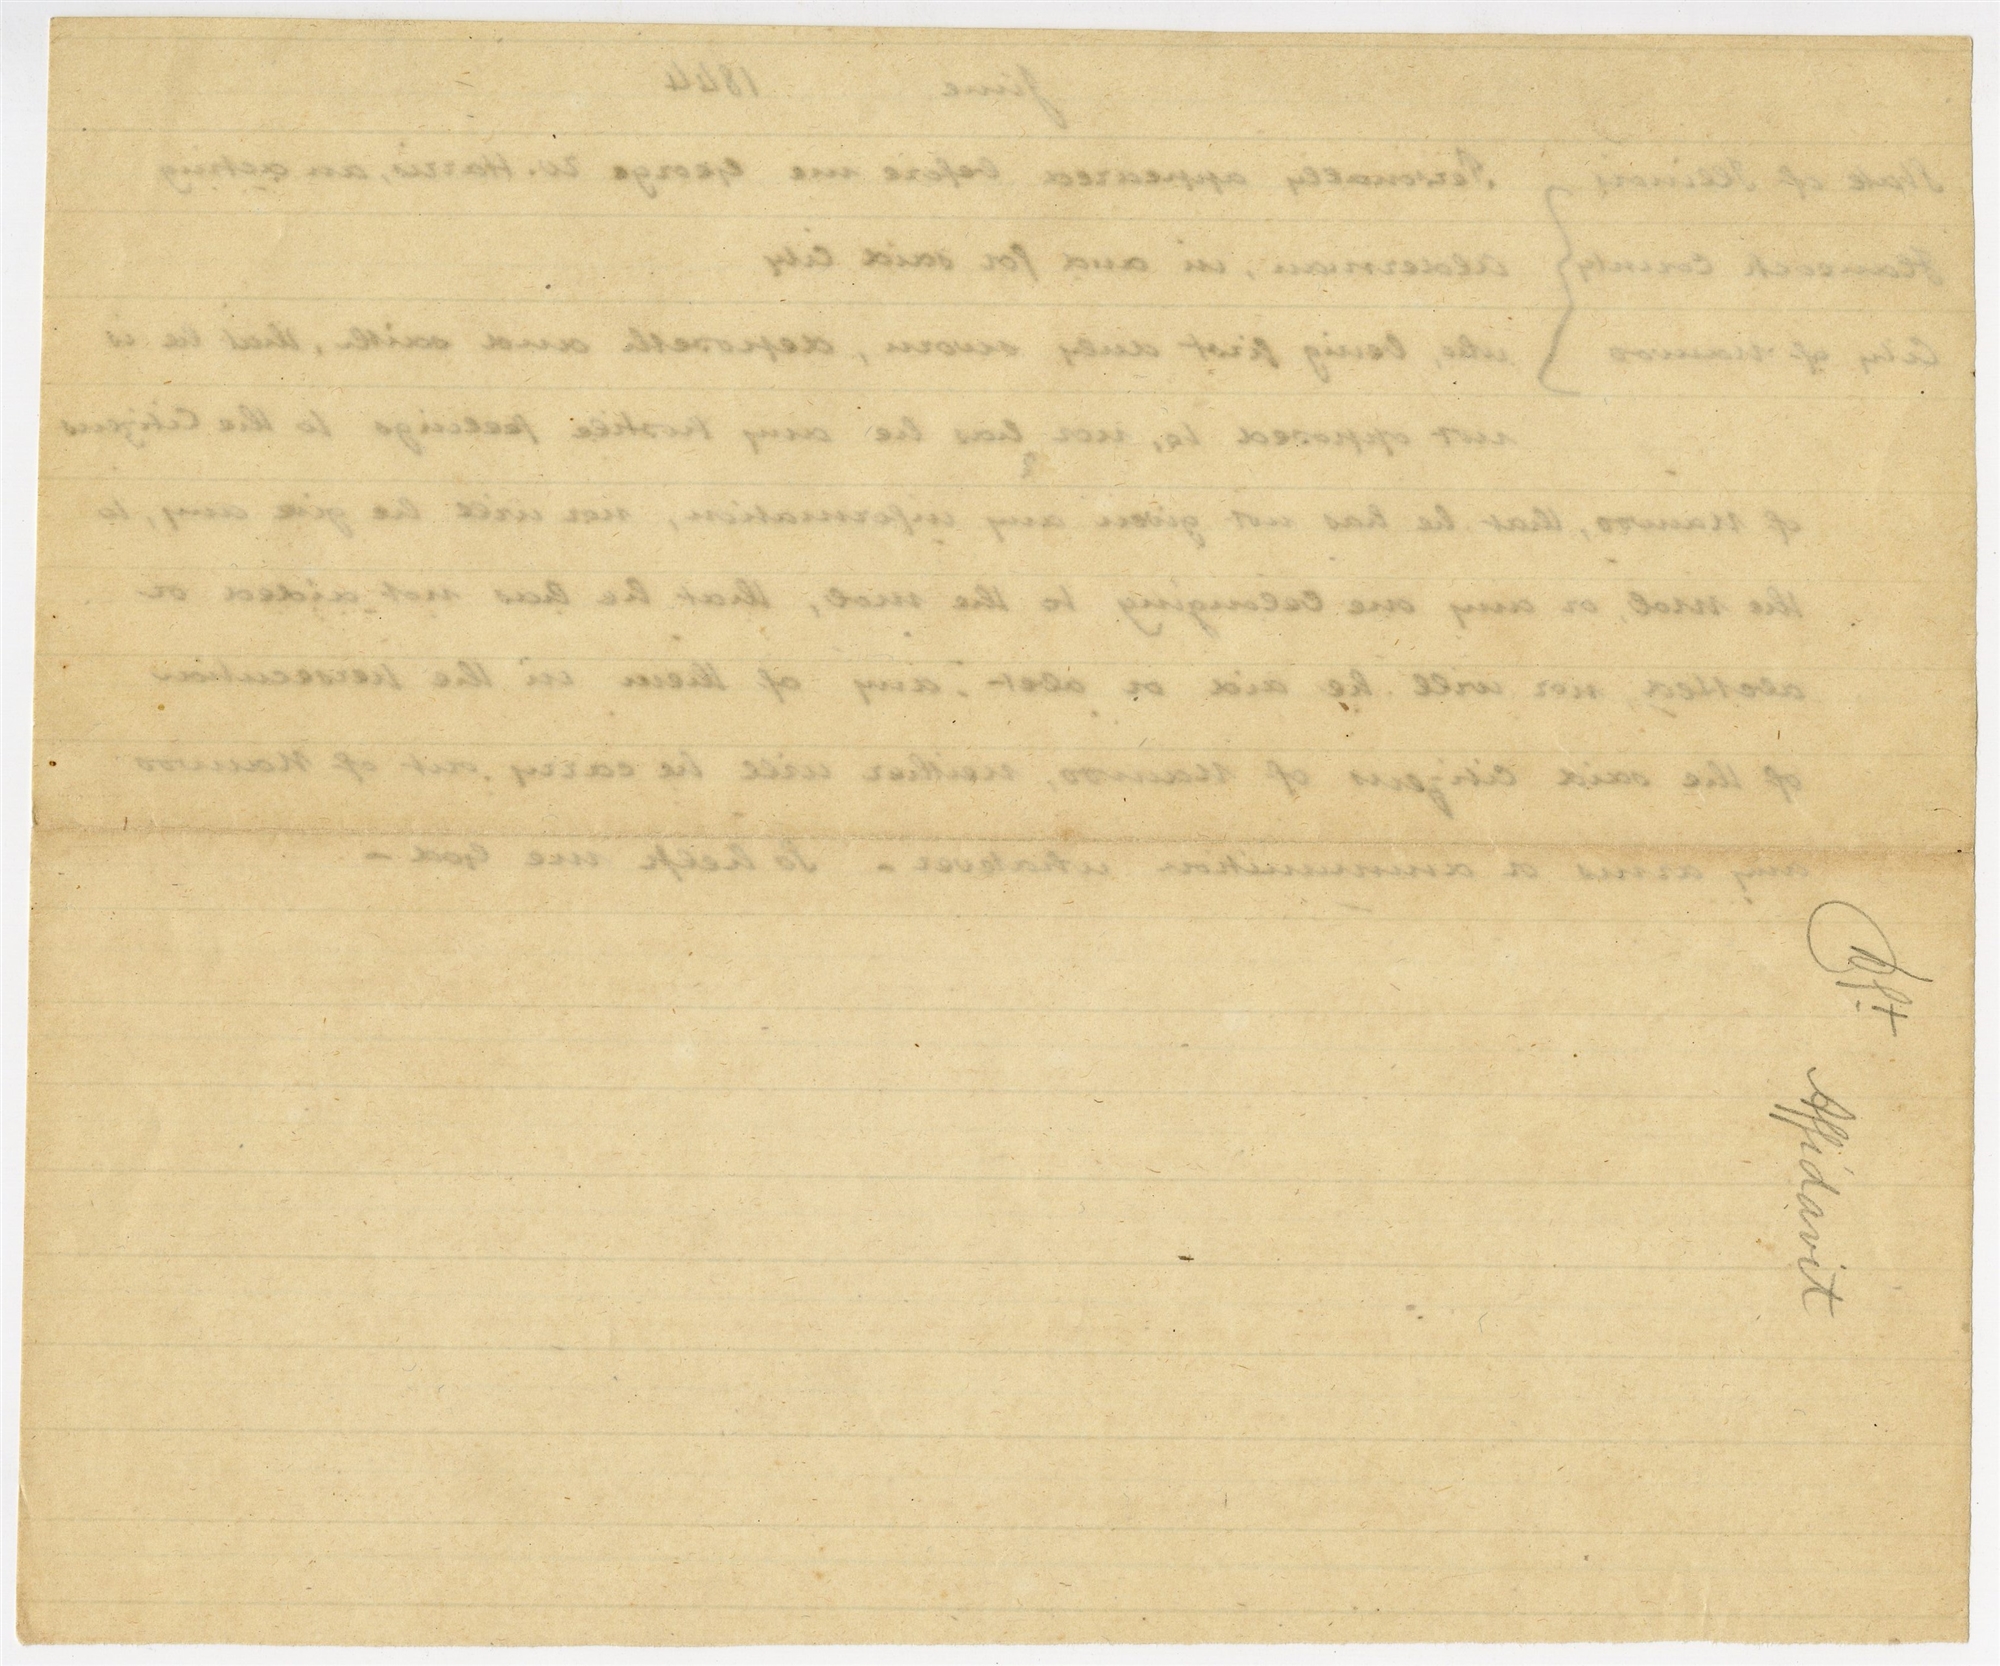 June 1844
State of Illinois } Personally appeared before me George W. Harris, an acting
Hancock County } Alderman, in and for said City
City of Nauvoo } who, being first duly sworn, deposeth and saith, that he is
not opposed to, nor has he any hostile feelings to the Citizens
of Nauvoo, that he has not given any information, nor will he give any, to
the mob, or any one belonging to the mob, that he has not aided or
abetted, nor will he aid or abet any of them in the persecution
of the said Citizens of Nauvoo, neither will he carry out of Nauvoo
any arms or ammunition whatever - So help me God -
Affidavit